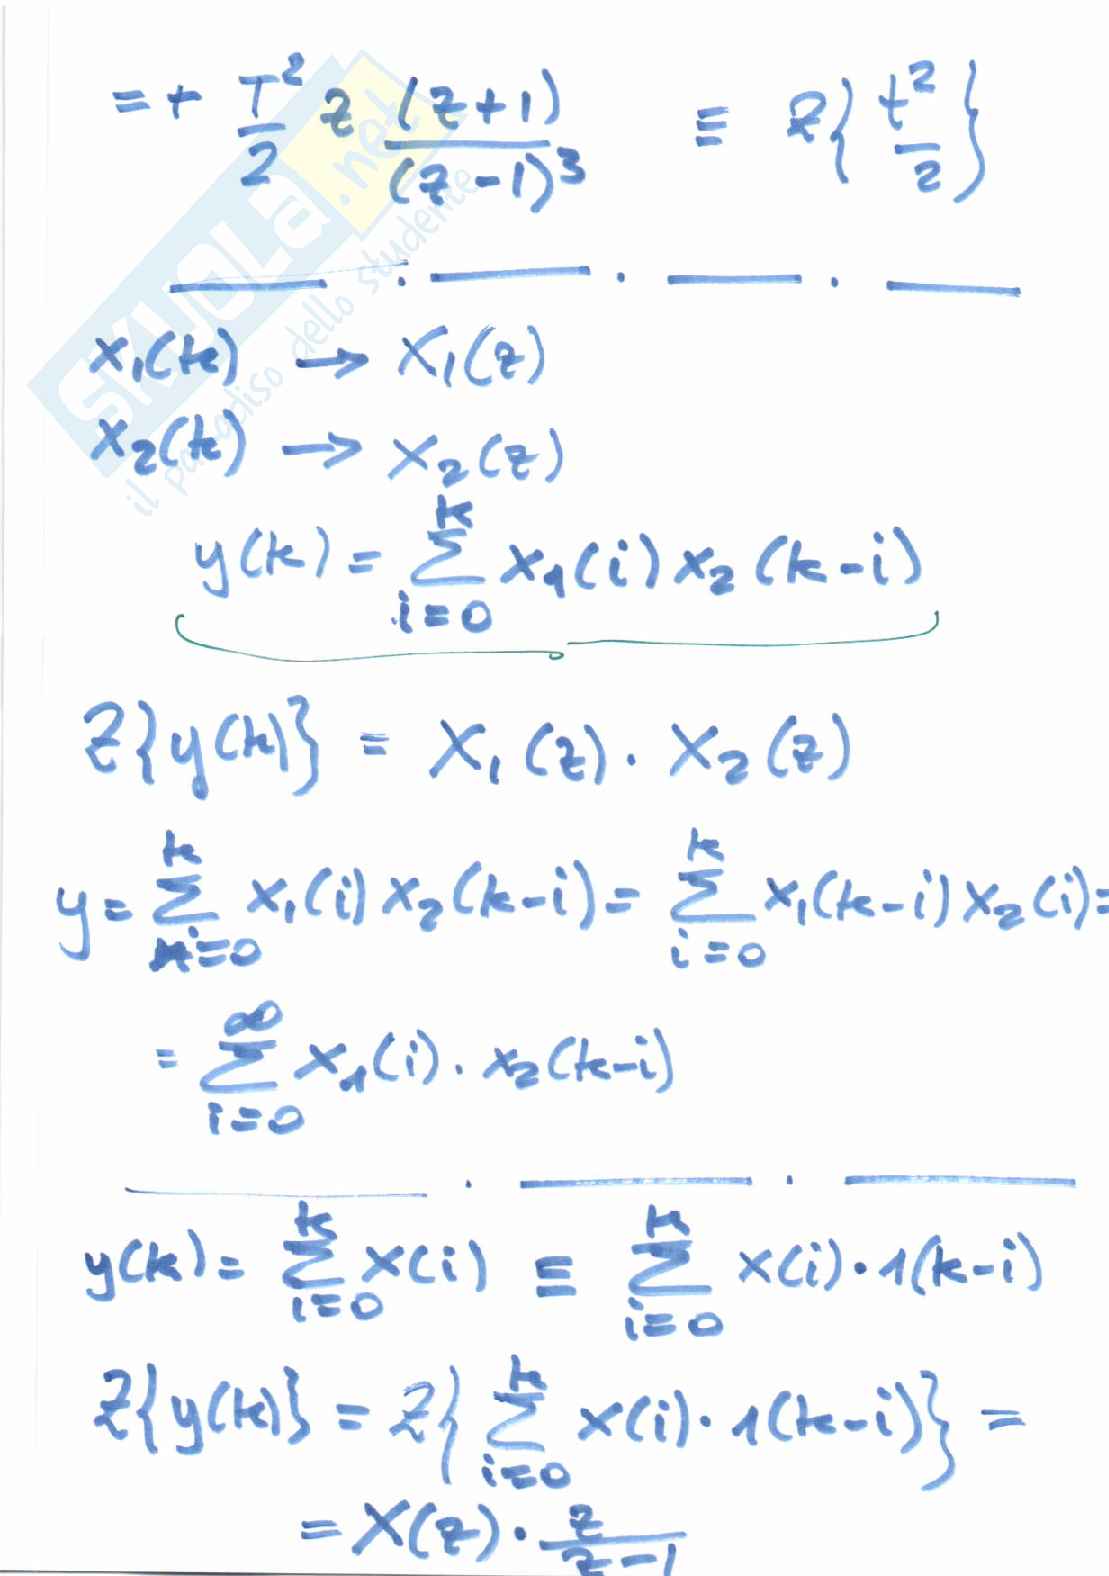 = + T²/2 z (z+1)/(z-1)³ ≡ Z{t²/2}
SKUOLa.net
il paradiso dello studente
x₁(k) → X₁(z)
x₂(k) → X₂(z)
y(k) = Σ_{i=0}^{k} x₁(i) x₂(k-i)
Z{y(k)} = X₁(z) · X₂(z)
y = Σ_{i=0}^{k} x₁(i) x₂(k-i) = Σ_{i=0}^{k} x₁(k-i) x₂(i) =
= Σ_{i=0}^{∞} x₁(i) · x₂(k-i)
y(k) = Σ_{i=0}^{k} x(i) ≡ Σ_{i=0}^{k} x(i) · 1(k-i)
Z{y(k)} = Z{Σ_{i=0}^{k} x(i) · 1(k-i)} =
= X(z) · z/(z-1)